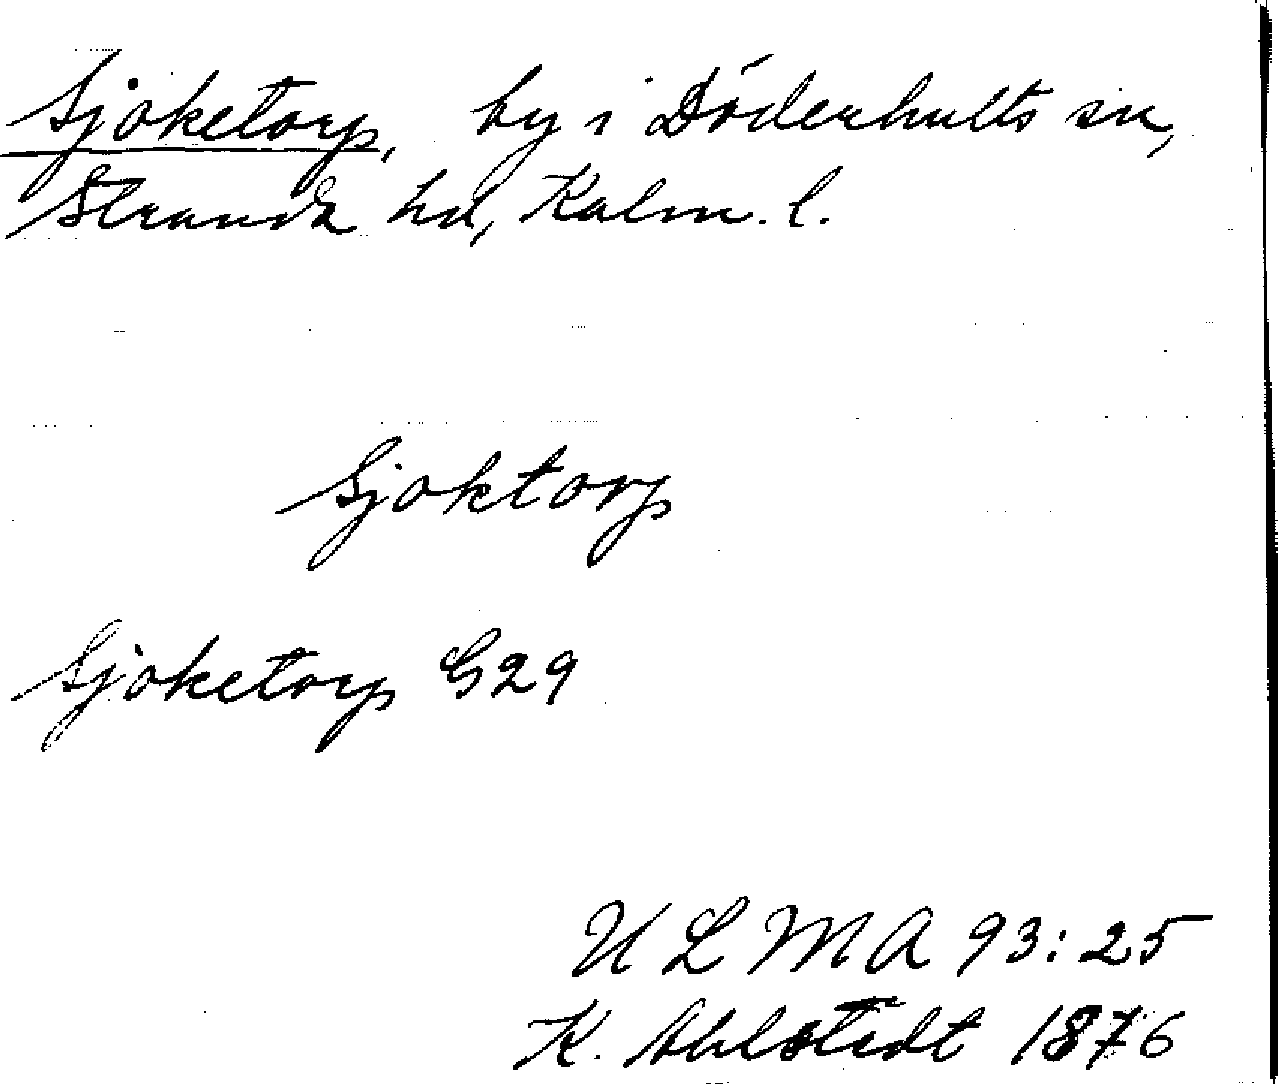 Sjoketorp, by i Döderhults sn,
Stranda hd, Kalm. l.
Sjoktorp
Sjoketorp G29
ULMA 93:25
K. Ahlstedt 1876